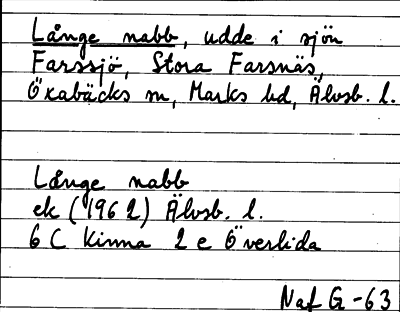 Långe nabb, udde i sjön
Farssjö, Stora Farsnäs,
Öxabäcks sn, Marks hd, Älvsb. l.
Långe nabb
ek (1962) Älvsb. l.
6 C Kinna 2 e Överlida
Naf G-63